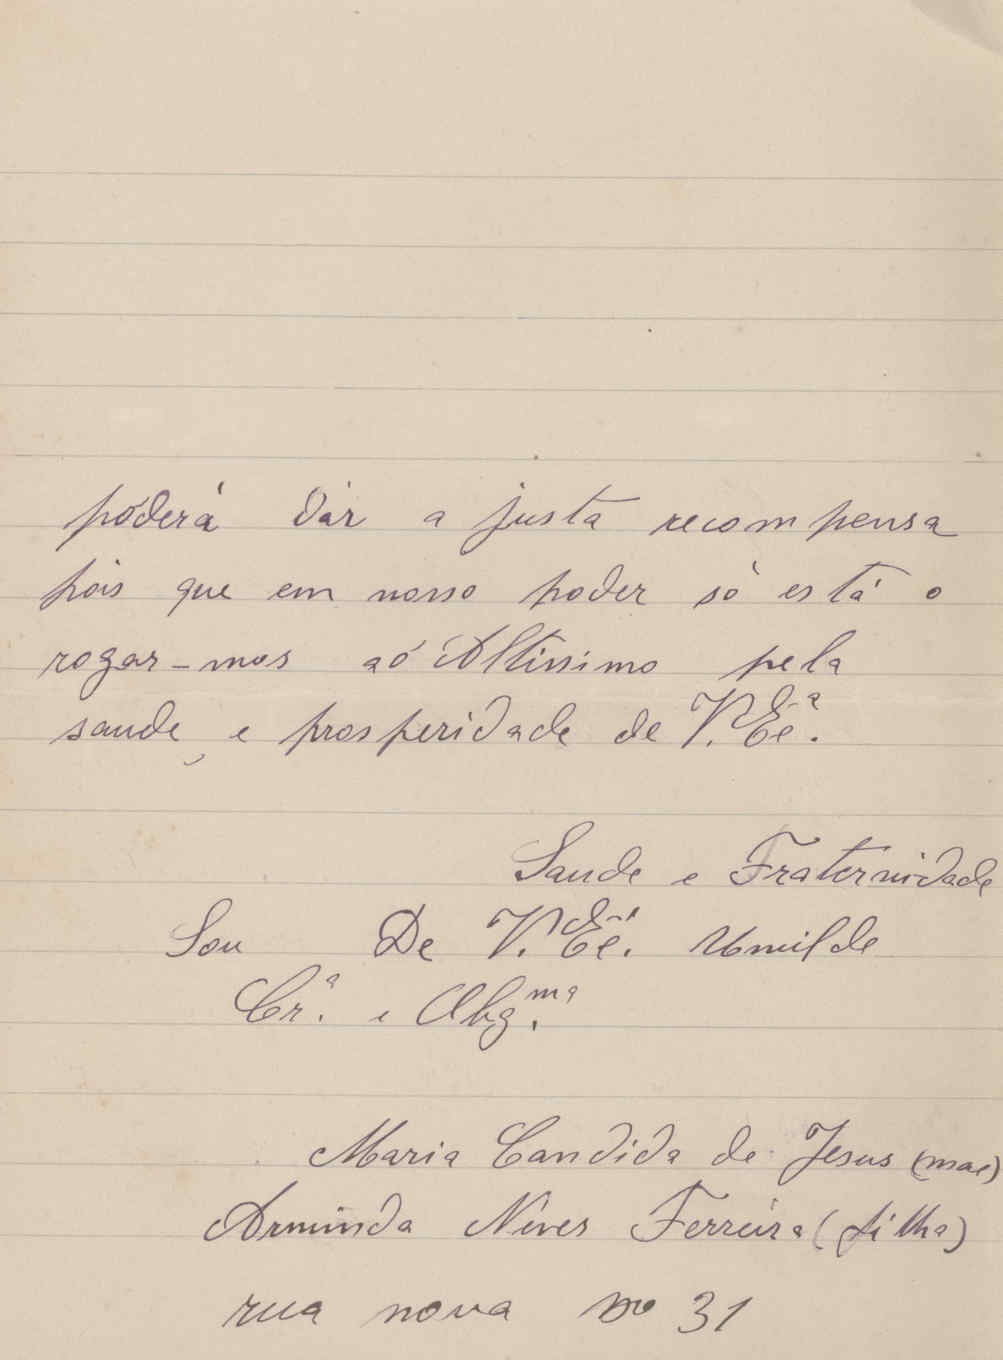 póderá dár a justa recompensa
pois que em nosso poder só está o
rogar-mos aó Altissimo pela
saude, e prosperidade de V. Eª.
Saude e Fraternidade
Sou De V. Eª. Umilde
Crª. e Obg.mª
Maria Candida de Jesus (mae)
Arminda Neves Ferreira (filha)
rua nova nº 31